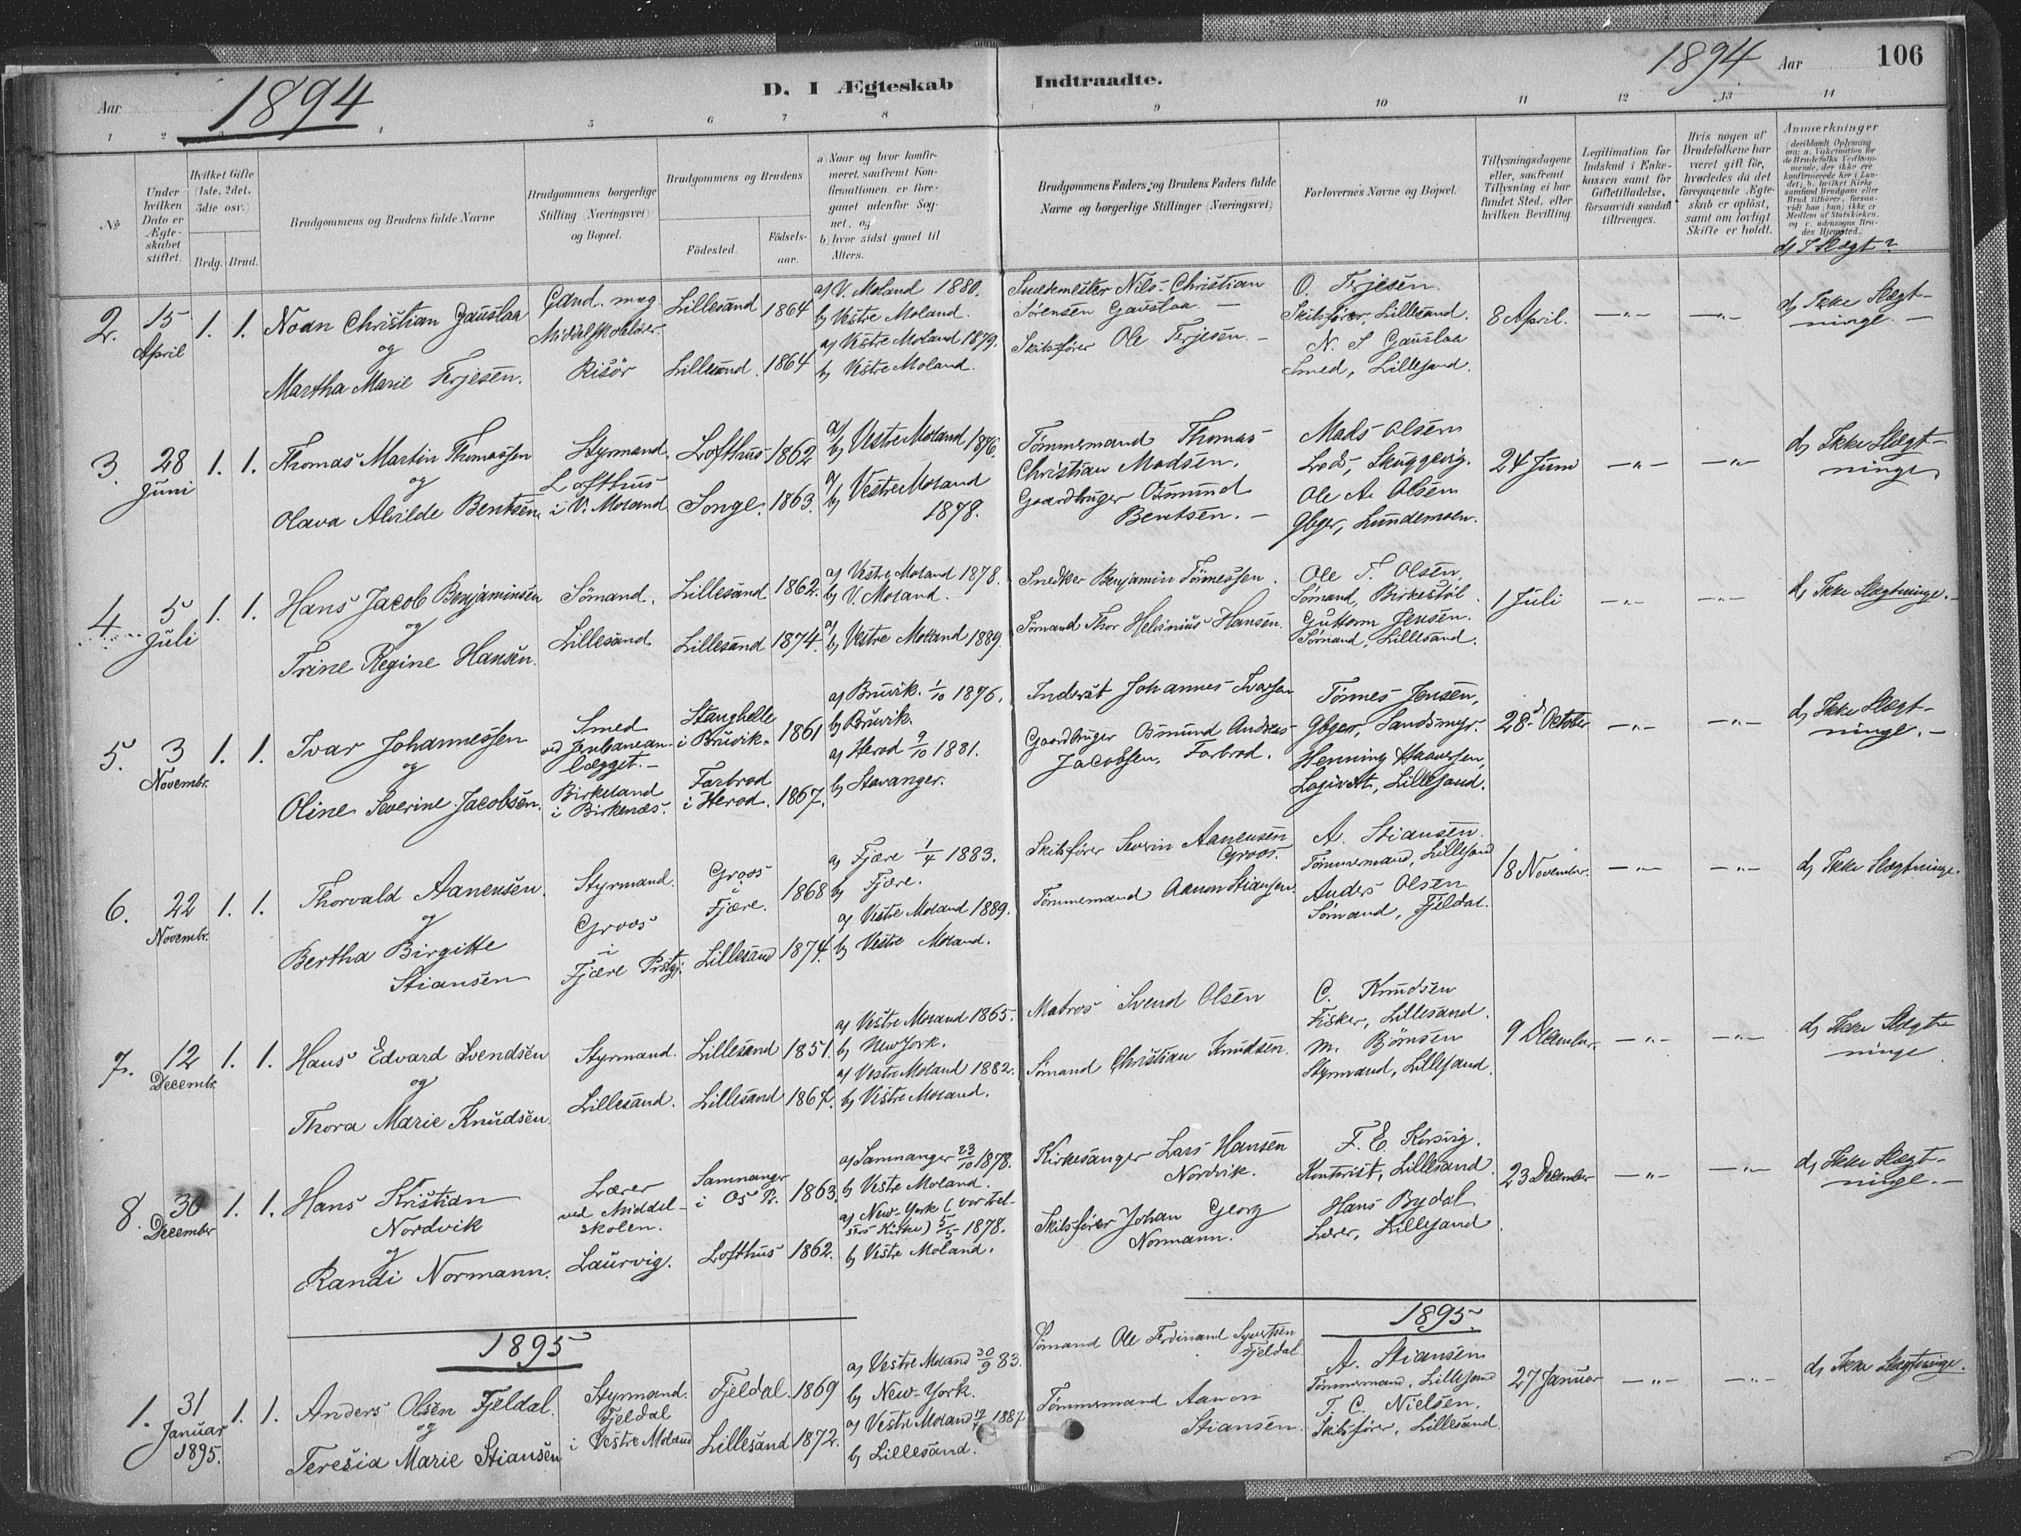 Aar 1894
D. I Ægteskab Indtraadte.
1894 Aar 106
1 2 3 4 5 6 7 8 9 10 11 12 13 14
№
Under hvilken Dato er Ægteskabet stiftet.
Hvilket Gifte (1ste, 2det, 3die osv.)
Brdg. Brud.
Brudgommens og Brudens fulde Navne
Brudgommens borgerlige Stilling (Næringsvei) og Bopæl.
Brudgommens og Brudens
Fødested. Fødselsaar.
a Naar og hvor konfirmeret, saafremt Konfirmationen er foregaaet udenfor Sognet, og
b hvor sidst gaaet til Alters.
Brudgommens Faders og Brudens Faders fulde Navne og borgerlige Stillinger (Næringsvei)
Forlovernes Navne og Bopæl.
Tillysningsdagene eller, saafremt Tillysning ei har fundet Sted, efter hvilken Bevilling.
Legitimation for Indskud i Enkekassen samt for Giftetilladelse, forsaavidt saadan tiltrænges.
Hvis nogen af Brudefolkene har været gift før, hvorledes da det foregaaende Ægteskab er opløst, samt om lovligt Skifte er holdt.
Anmerkninger
d) I Slægt?
2. 15 April 1. 1.
Noan Christian Gauslaa
og
Martha Marie Terjesen.
Cand. mag. Middelskolelærer
Risör
Lillesand 1864
Lillesand. 1864
a) V. Moland 1880.
b) Vestre Moland.
a) Vestre Moland 1879.
b) Vestre Moland.
Smedemester Nils Christian
Sørensen Gauslaa —
Skibsfører Ole Terjesen. —
O. Terjesen.
Skibsfører, Lillesand.
N. S Gauslaa
Smed, Lillesand.
8 April. —„— —„—
d) Ikke Slægtninge. —
3. 28 Juni 1. 1.
Thomas Martin Thomassen
og
Olava Alvilde Bentsen.
Styrmand.
Lofthus
i V. Moland
Lofthus 1862
Songe. 1863.
a) b) Vestre Moland 1876.
a) b) Vestre Moland
1878.
Tømmermand Thomas
Christian Madsen.
Gaardbruger Osmund
Bentsen. —
Mads Olsen
Lods, Skuggevig.
Ole A. Olsen
Gbgr, Lundemoen.
24 Juni —„— —„—
d) Ikke Slægtninge
4. 5 Juli 1. 1.
Hans Jacob Benjaminsen
og
Trine Regine Hansen.
Sömand.
Lillesand.
Lillesand 1862.
Lillesand 1874.
a) Vestre Moland 1878.
b) V. Moland.
a) b) Vestre Moland 1889.
Snedker Benjamin Tönnessen.
Sømand Thor Helenius Hansen.
Ole T. Olsen,
Sømand, Birkestöl.
Guttorm Jensen.
Sømand, Lillesand.
1 Juli —„— —„—
d) Ikke Slægtninge. —
5. 3 Novembr. 1. 1.
Ivar Johannessen
og
Oline Severine Jacobsen.
Smed
ved Jernbaneanlægget. —
Birkeland
i Birkenæs.
Stanghelle
i Bruvik. 1861
Farbrod
i Herod. 1867.
a) Bruvik. 1/10 1876.
b) Bruvik.
a) Herod 9/10 1881.
b) Stavanger.
Inderst Johannes Ivarsen
Gaardbruger Osmund Andreas
Jacobsen, Farbrod.
Tönnes Jensen,
Gbger, Sandsmyr.
Henning Haaversen,
Logivært, Lillesand.
28d Oktober —„— —„—
d) Ikke Slægtninge. —
6. 22 Novembr. 1. 1.
Thorvald Aanensen.
og
Bertha Birgitte
Stiansen
Styrmand.
Groos
i
Fjære Prstgj.
Groos
i
Fjære. 1868
Lillesand 1874.
a) Fjære 1/4 1883.
b) Fjære.
a) Vestre Moland 1889.
b) Vestre Moland.
Skibsfører Severin Aanensen
Groos.
Tømmermand Aanon Stiansen.
A. Stiansen.
Tømmermand, Lillesand
Anders Olsen
Sømand, Fjeldal.
18 November. —„— —„—
d) Ikke Slægtninge.
7. 12 Decembr. 1. 1.
Hans Edvard Svendsen
og
Thora Marie Knudsen.
Styrmand.
Lillesand.
Lillesand 1851.
Lillesand 1867.
a) Vestre Moland 1865.
b) New York.
a) Vestre Moland 1882.
b) Vestre Moland.
Matros Svend Olsen
Sømand Christian Knudsen.
C. Knudsen
Fisker, Lillesand.
M. Björnsen
Styrmand, Lillesand.
9 December. —„— —„—
d) Ikke Slægtninge.
8. 30 December 1. 1.
Hans Kristian
Nordvik
og
Randi Normann.
Lærer
ved Middelskolen.
Laurvig.
Samnanger
i Os P. 1863.
Lofthus 1862.
a) Samnanger 23/10 1878.
b) Vestre Moland.
a) New-York (vor Frelsers Kirke) 5/5 1878.
b) Vestre Moland.
Kirkesanger Lars Hansen
Nordvik.
Skibsfører Johan Georg
Normann.
F. E Korsvig.
Kontorist, Lillesand.
Hans Bydal
Lærer, Lillesand.
23 December —„— —„—
d) Ikke Slægtninge. —
1895 1895.
1. 31 Januar 1895. 1. 1.
Anders Olsen Fjeldal.
og
Teresia Marie Stiansen
Styrmand.
Fjeldal
i Vestre Moland
Fjeldal. 1869
Lillesand 1872.
a) Vestre Moland 30/9 83.
b) New-York.
a) Vestre Moland 1887
b) Lillesand.
Sømand Ole Ferdinand Syvertsen
Fjeldal
Tømmermand Aanon
Stiansen.
A. Stiansen
Tømmermand, Lillesand
T. C. Nielsen.
Skibsfører, Lillesand.
27 Januar —„— —„—
d) Ikke Slægtninge.